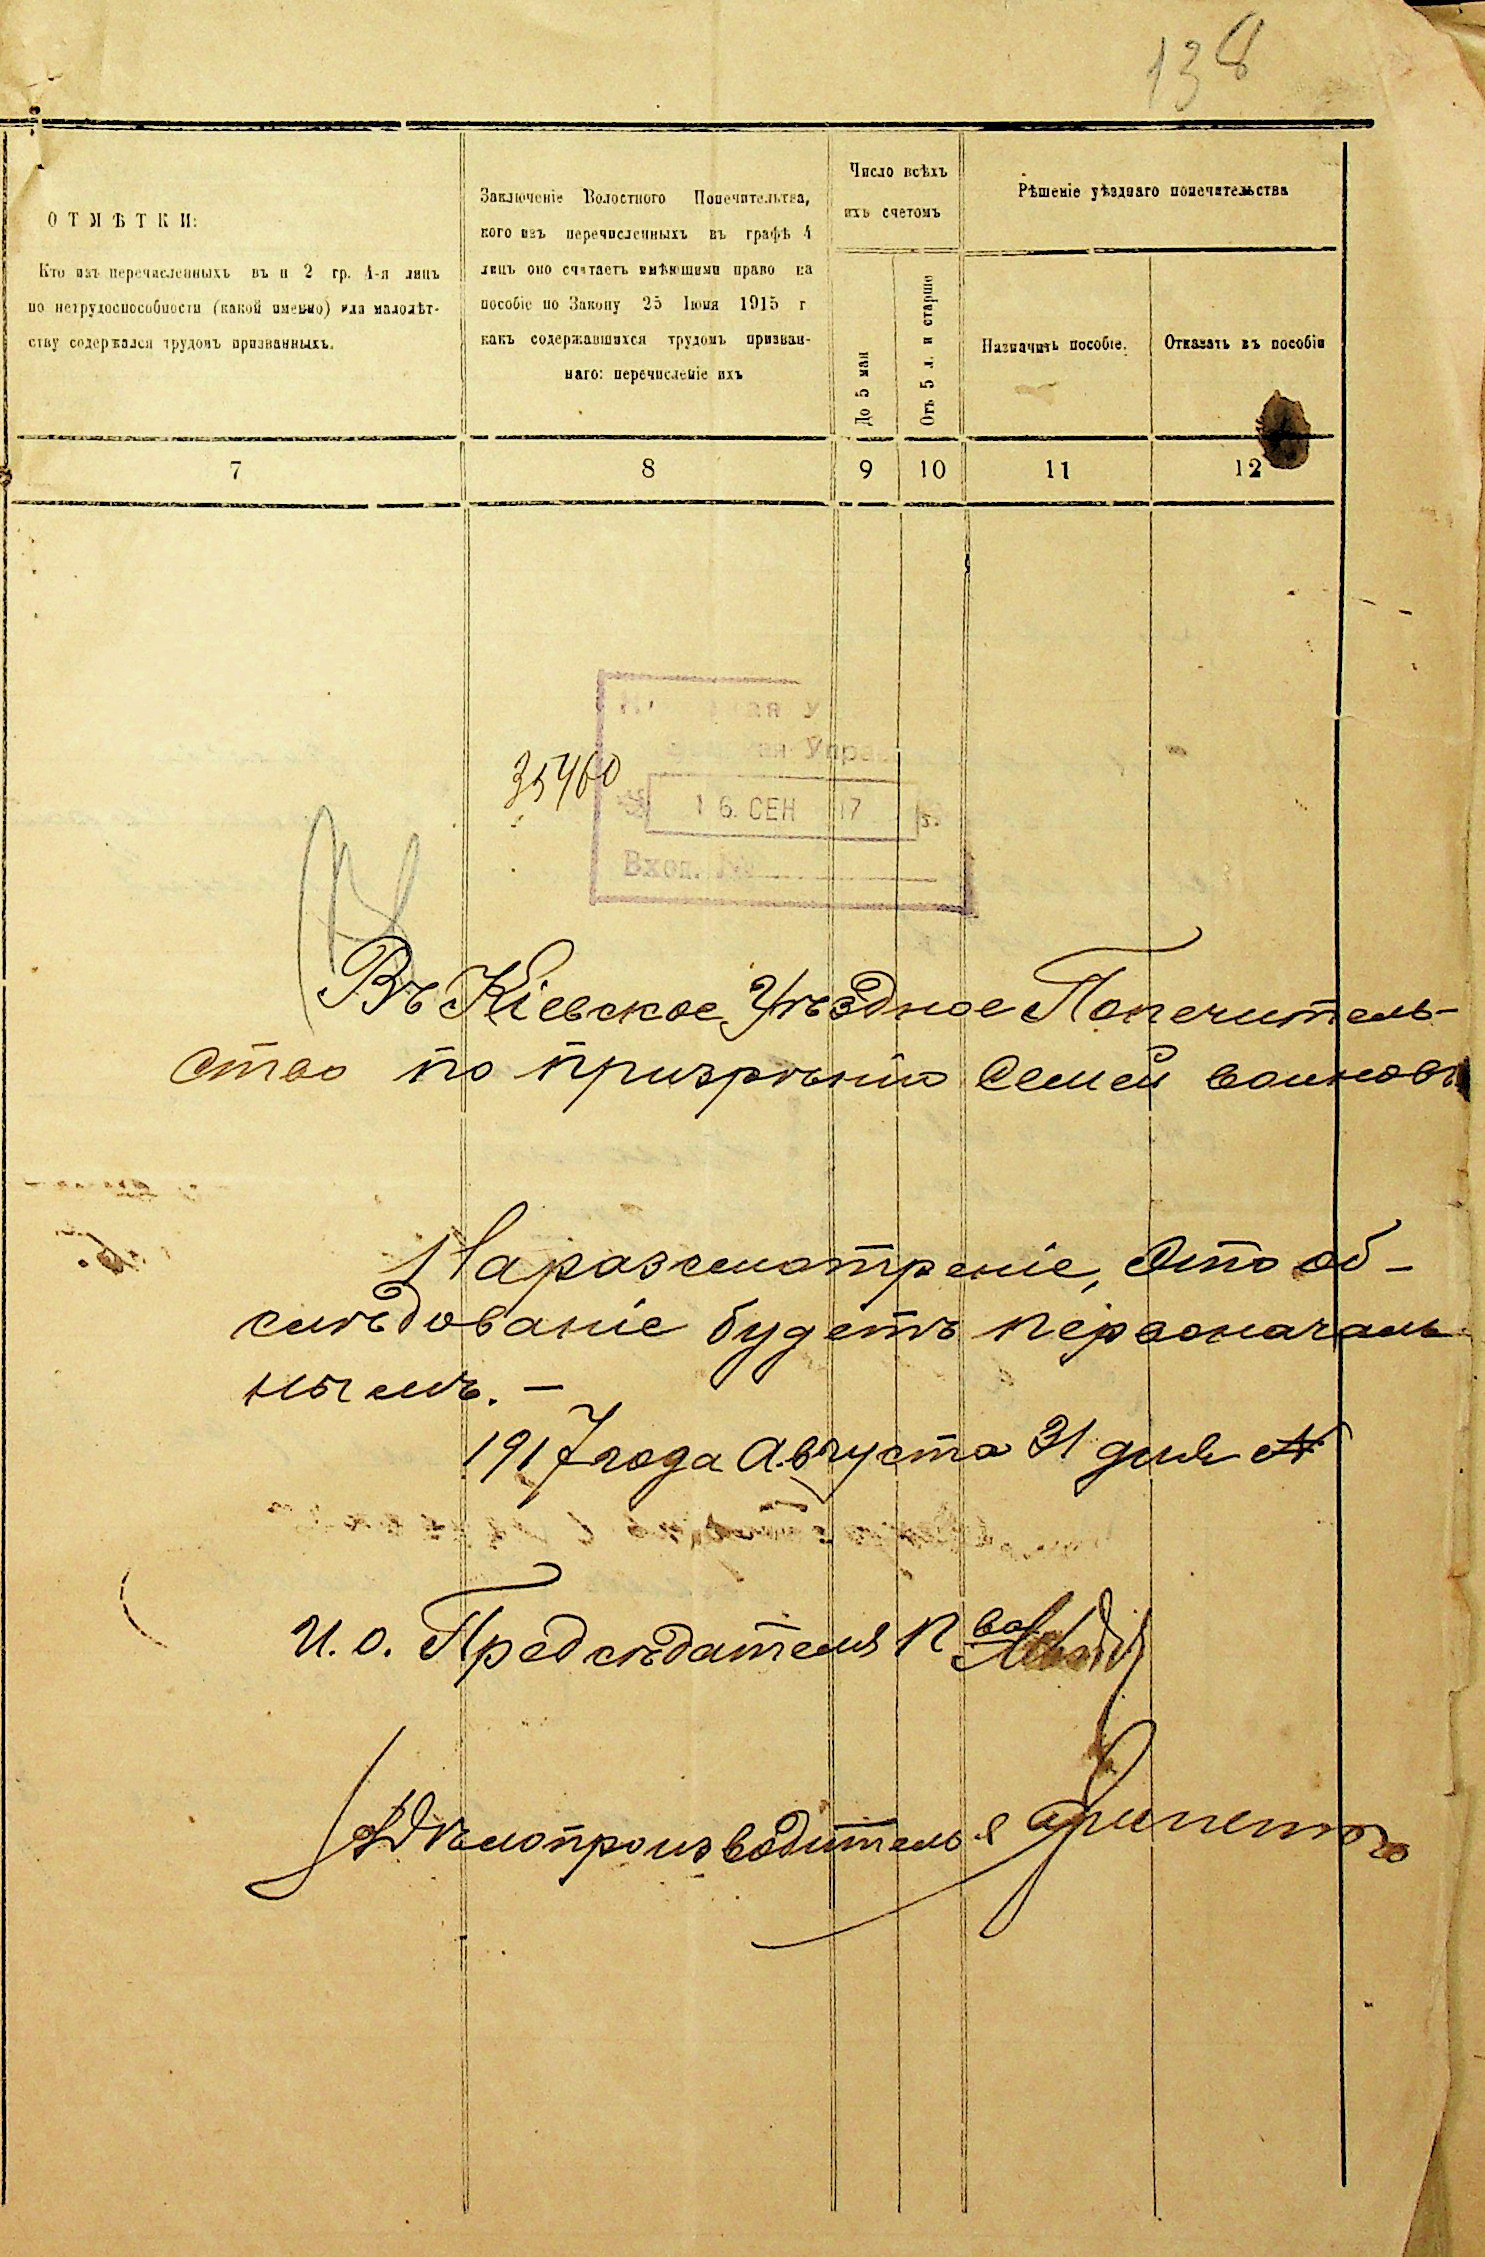 138
ОТМѢТКИ:
Кто изъ перечисленныхъ въ п 2 гр. 4-я лицъ
по нетрудоспособности (какой именно) или малолѣт-
ству содержался трудомъ призванныхъ.
Заключеніе Волостного Попечительства,
кого изъ перечисленныхъ въ графѣ 4
лицъ оно считаетъ имѣющими право на
пособіе по Закону 25 Іюня 1915 г
какъ содержавшихся трудомъ призван-
наго: перечисленіе ихъ
Число всѣхъ
ихъ счетомъ
До 5 мая
Отъ 5 л. и старше
Рѣшеніе уѣзднаго попечительства
Назначить пособіе.
Отказать въ пособіи
7 8 9 10 11 12
35460
Упра
16. СЕН 17 г.
Вход. №
Въ Кіевское Уѣздное Попечитель-
ство по призрѣнію семей воиновъ
На разсмотреніе, Это об-
слѣдованіе будетъ первоначаль
нымъ. —
1917 года Августа 31 дня
И. о. Предсѣдателя П-ва
Дѣлопроизводитель